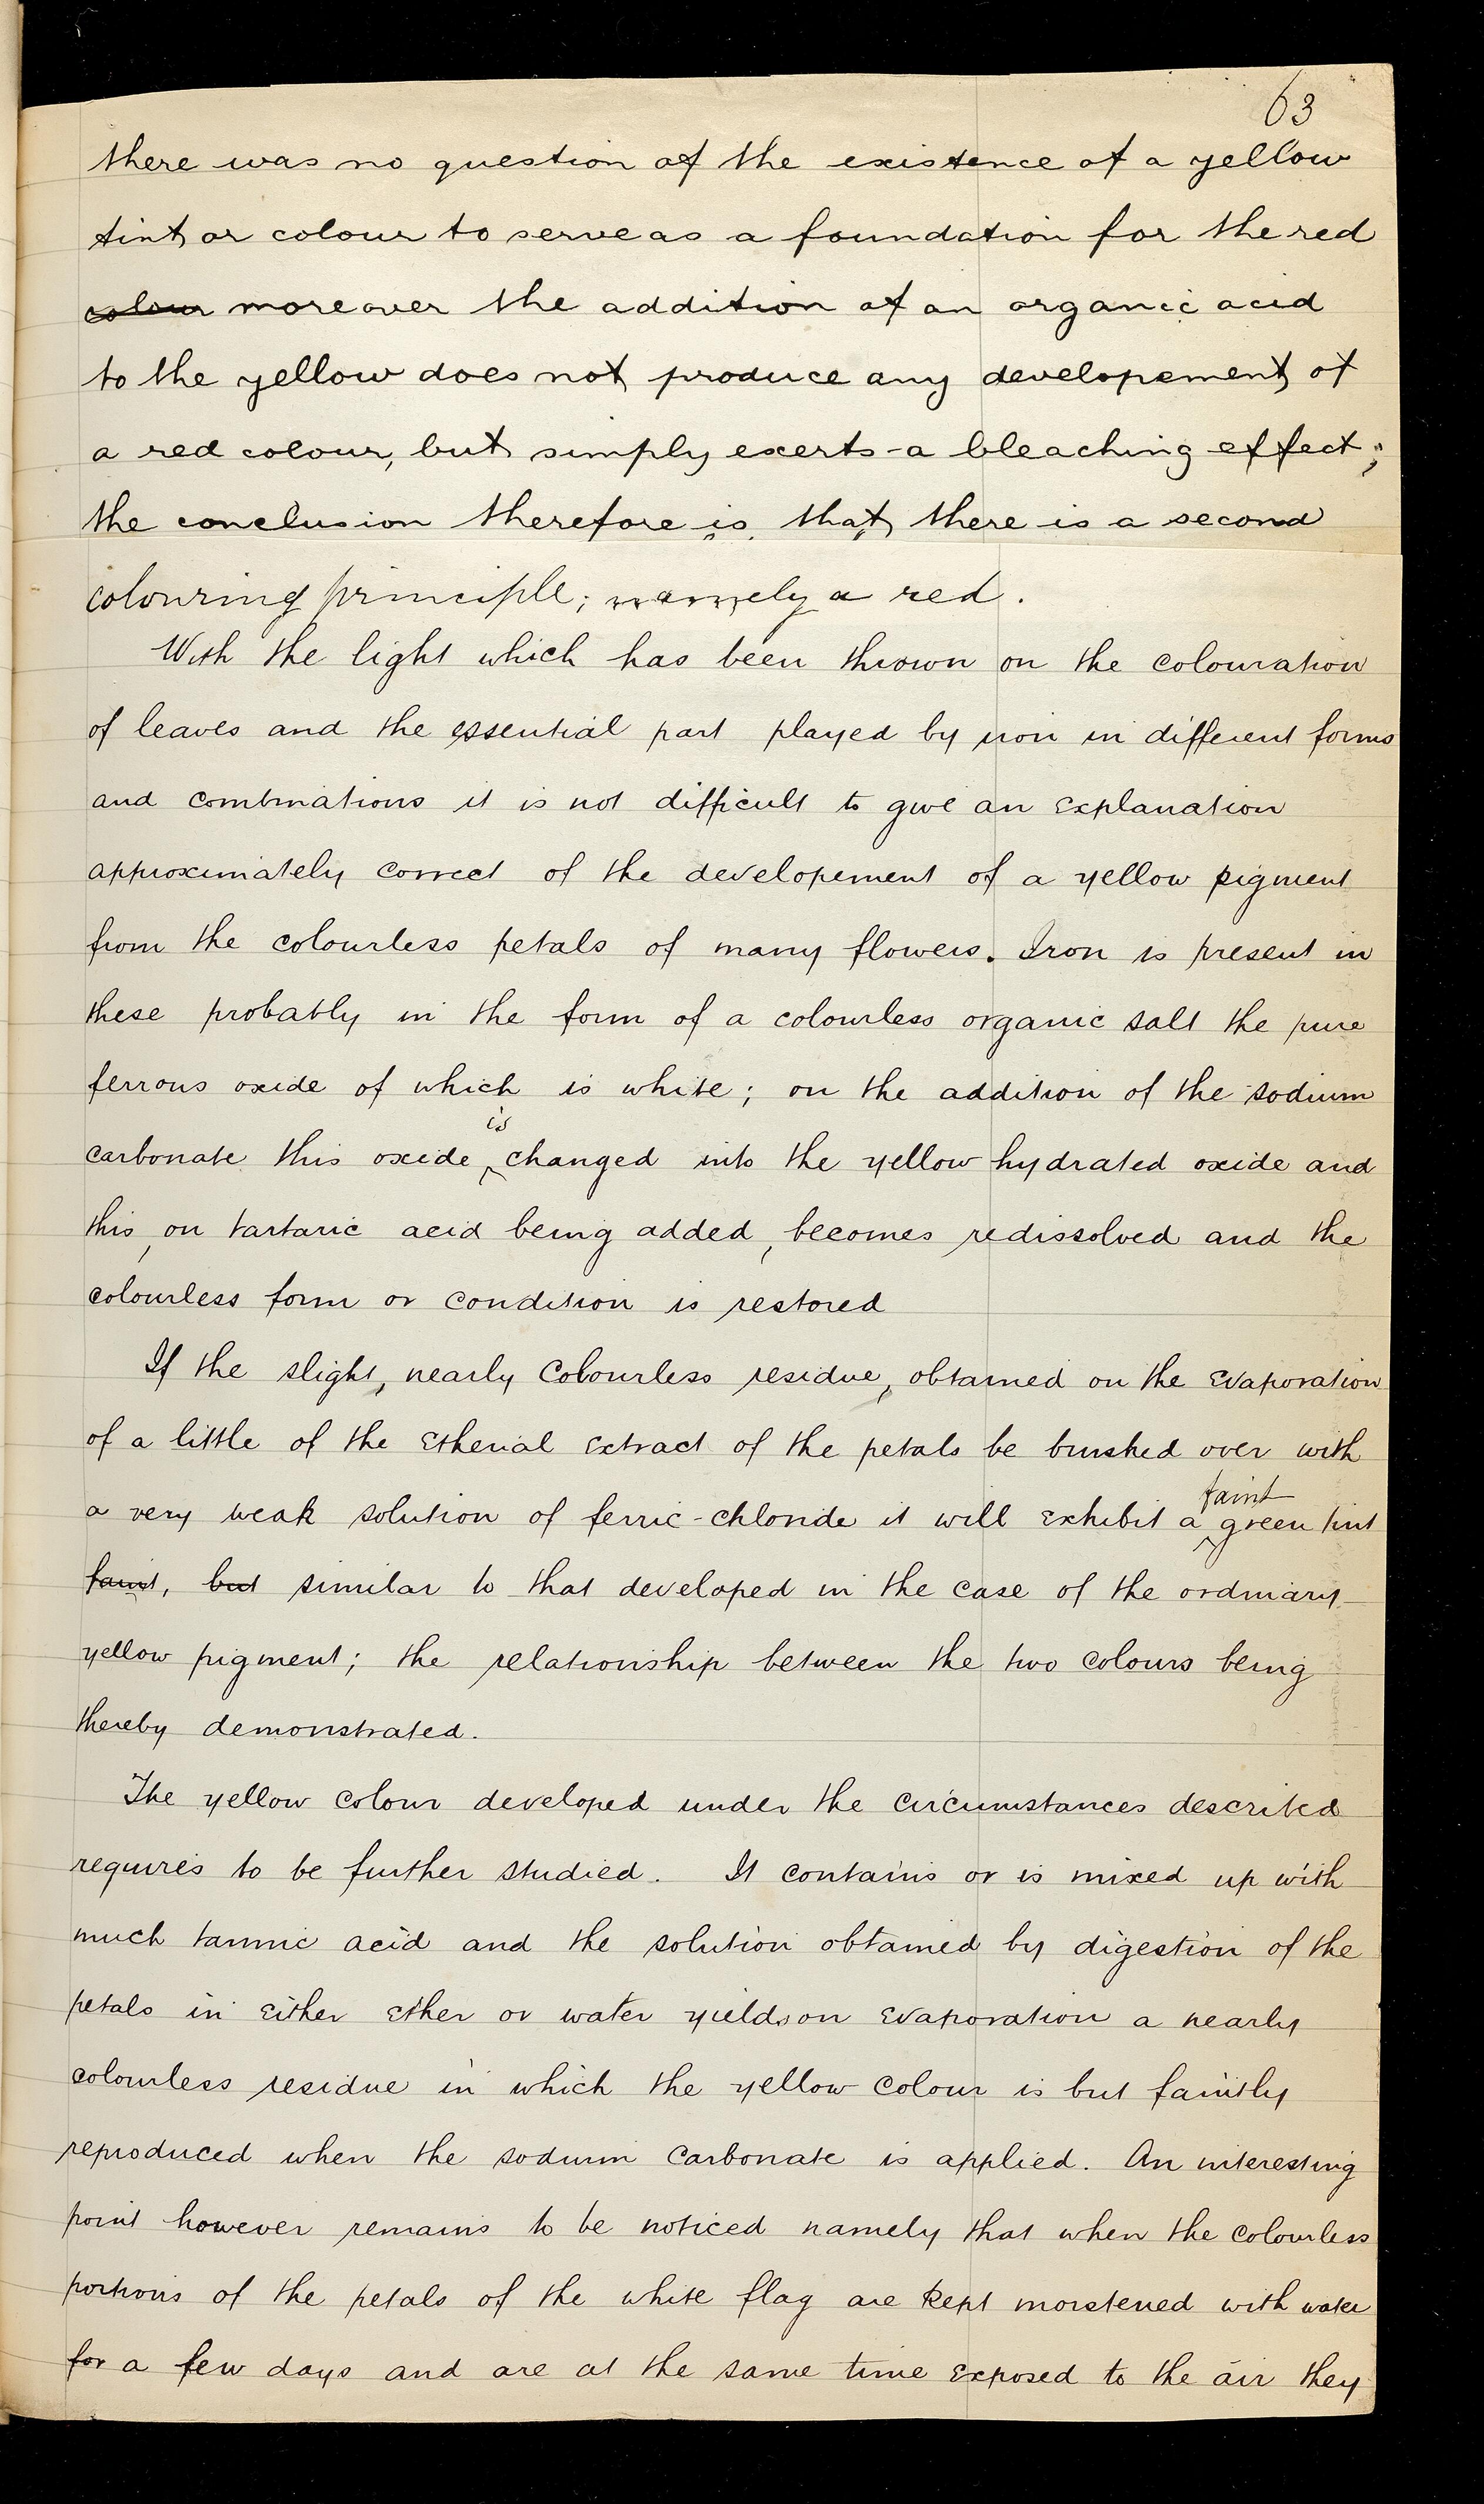 63
there was no question of the existence of a yellow
tint or colour to serve as a foundation for the red
colour moreover the addition of an organic acid
to the yellow does not produce any developement of
a red colour, but simply exerts - a bleaching effect;
the conclusion therefore is, that, there is a second
colouring principle; namely a red.
With the light which has been thrown on the colouration
of leaves and the essential part played by iron in different forms
and combinations it is not difficult to give an explanation
approximately correct of the developement of a yellow pigment
from the colourless petals of many flowers. Iron is present in
these probably in the form of a colourless organic salt the pure
ferrous oxide of which is white; on the addition of the sodium
is
carbonate this oxide changed into the yellow hydrated oxide and
this, on tartaric acid being added, becomes redissolved and the
colourless form or condition is restored
If the slight, nearly colourless residue, obtained on the evaporation
of a little of the etherial extract of the petals be brushed over with
faint
a very weak solution of ferric-chloride it will exhibit a green tint
faint, but similar to that developed in the case of the ordinary
yellow pigment; the relationship between the two colours being
thereby demonstrated.
The yellow colour developed under the circumstances described
requires to be further studied. It contains or is mixed up with
much tannic acid and the solution obtained by digestion of the
petals in either ether or water yields on evaporation a nearly
colourless residue in which the yellow colour is but faintly
reproduced when the sodium carbonate is applied. An interesting
point however remains to be noticed namely that when the colourless
portions of the petals of the white flag are kept moistened with water
for a few days and are at the same time exposed to the air they